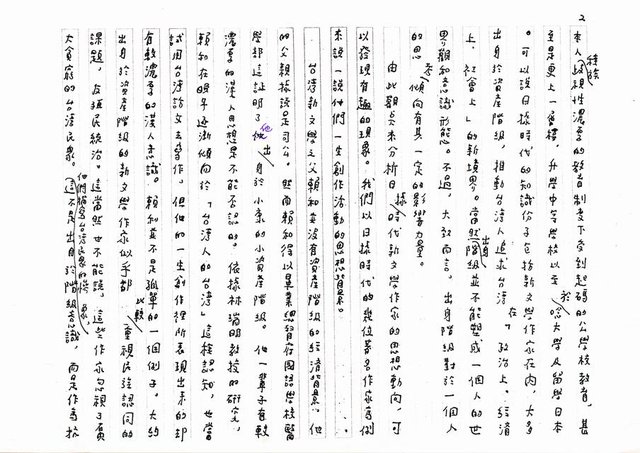 2
本人歧視性濃厚的教育制度下受到起碼的公學校教育，甚
至是更上一層樓，升學中等學校以至於唸大學及留學日本
。可以說日據時代的知識份子包括新文學作家在內，大多
出身於資產階級，推動台灣人追求台灣在「政治上、經濟
上、社會上」的新境界。當然出身階級並不能塑成一個人的世
界觀和意識形態。不過，大致而言，出身階級對於一個人
的思考傾向有其一定的影響力量。
由此觀點來分析日據時代新文學作家的思想動向，可
以發現有趣的現象。我們以日據時代的幾位著名作家為例
來說一說他們一生創作活動的思想背景。
台灣新文學之父賴和並沒有資產階級的經濟背景。他
的父親據說是司公。然而賴和得以畢業總督府國語學校醫
學部這證明了他出身於小康的小資產階級。他一輩子有較
濃厚的漢人思想是不能否認的。依據林瑞明教授的研究，
賴和在晚年逐漸傾向於「台灣人的台灣」這種認知，也嘗
試用台灣話文去寫作，但他的一生創作裡所表現出來的却
有較濃厚的漢人意識。賴和並不是孤單的一個例子。大約
出身於資產階級的新文學作家似乎都比較重視民族認同的
課題，反殖民統治。這當然也不能說，這些作家忽視了廣
大貧窮的台灣民眾。他們描寫台灣民眾的
這不是出身於階級意識，而是作為抗